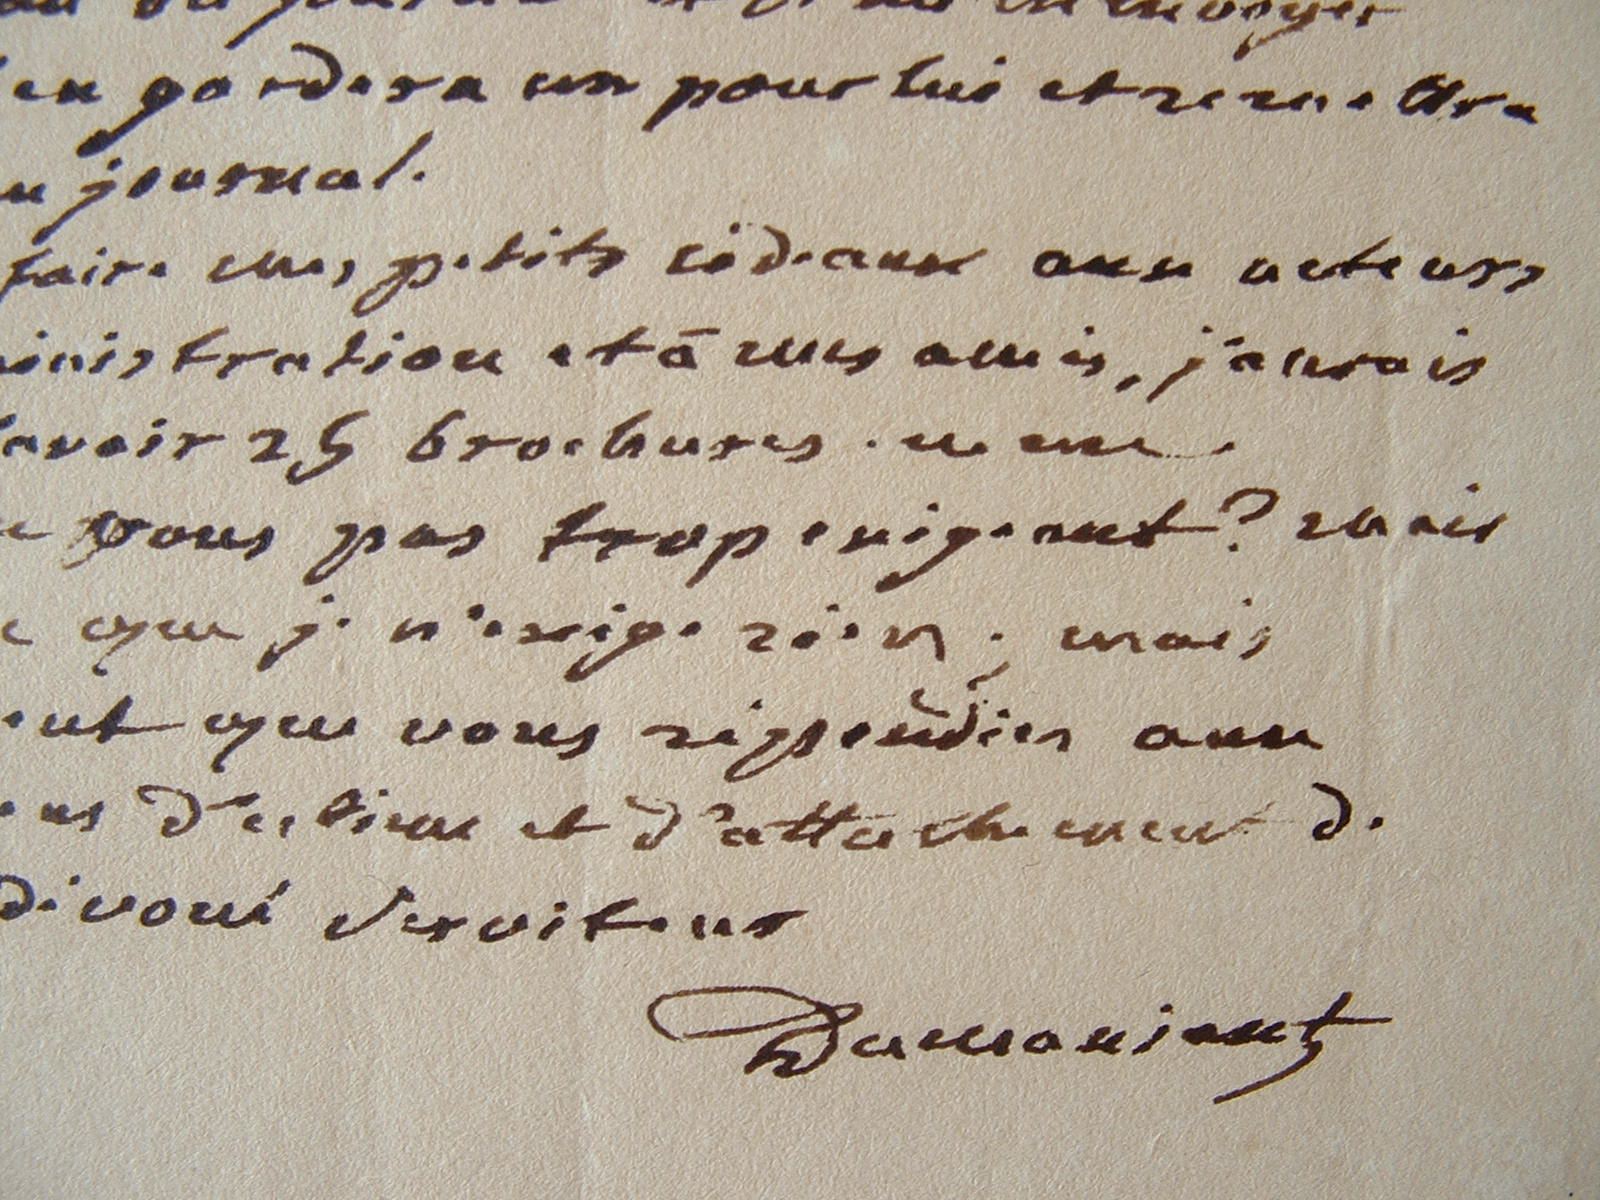 du journal et de me menvoyer
en gardera un pour lui et remettra
journal.
faire mes petits cideaux aux acteurs
ministration et à mes amis, j'aurais
avoir 25 brochures.
vous pas trop exigeant? mais
que je n'exige rien; mais
que vous repondiez aux
d'estime et d'attachement de
devoué serviteur
Dumaniant